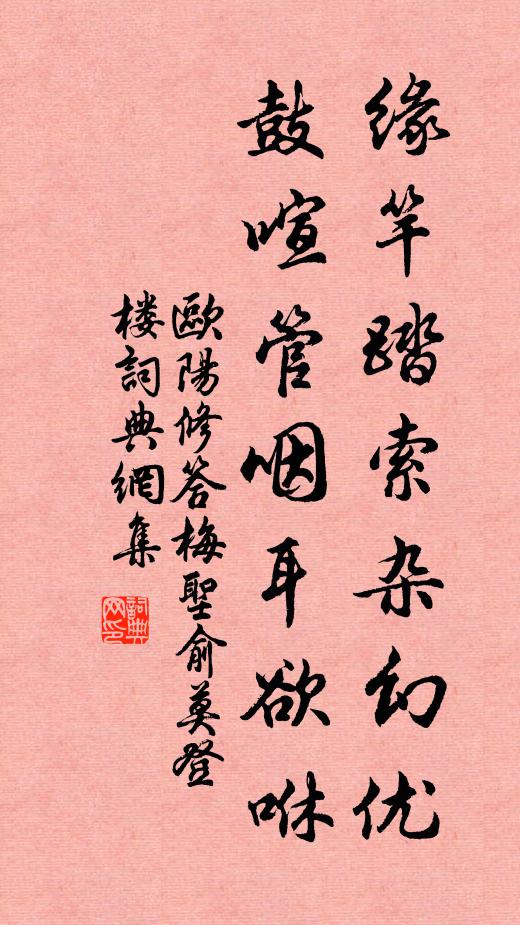 缘竿踏索杂幻优
鼓喧管咽耳欲咻
歐陽修答梅聖俞莫登
楼詞典網集
詞典网印